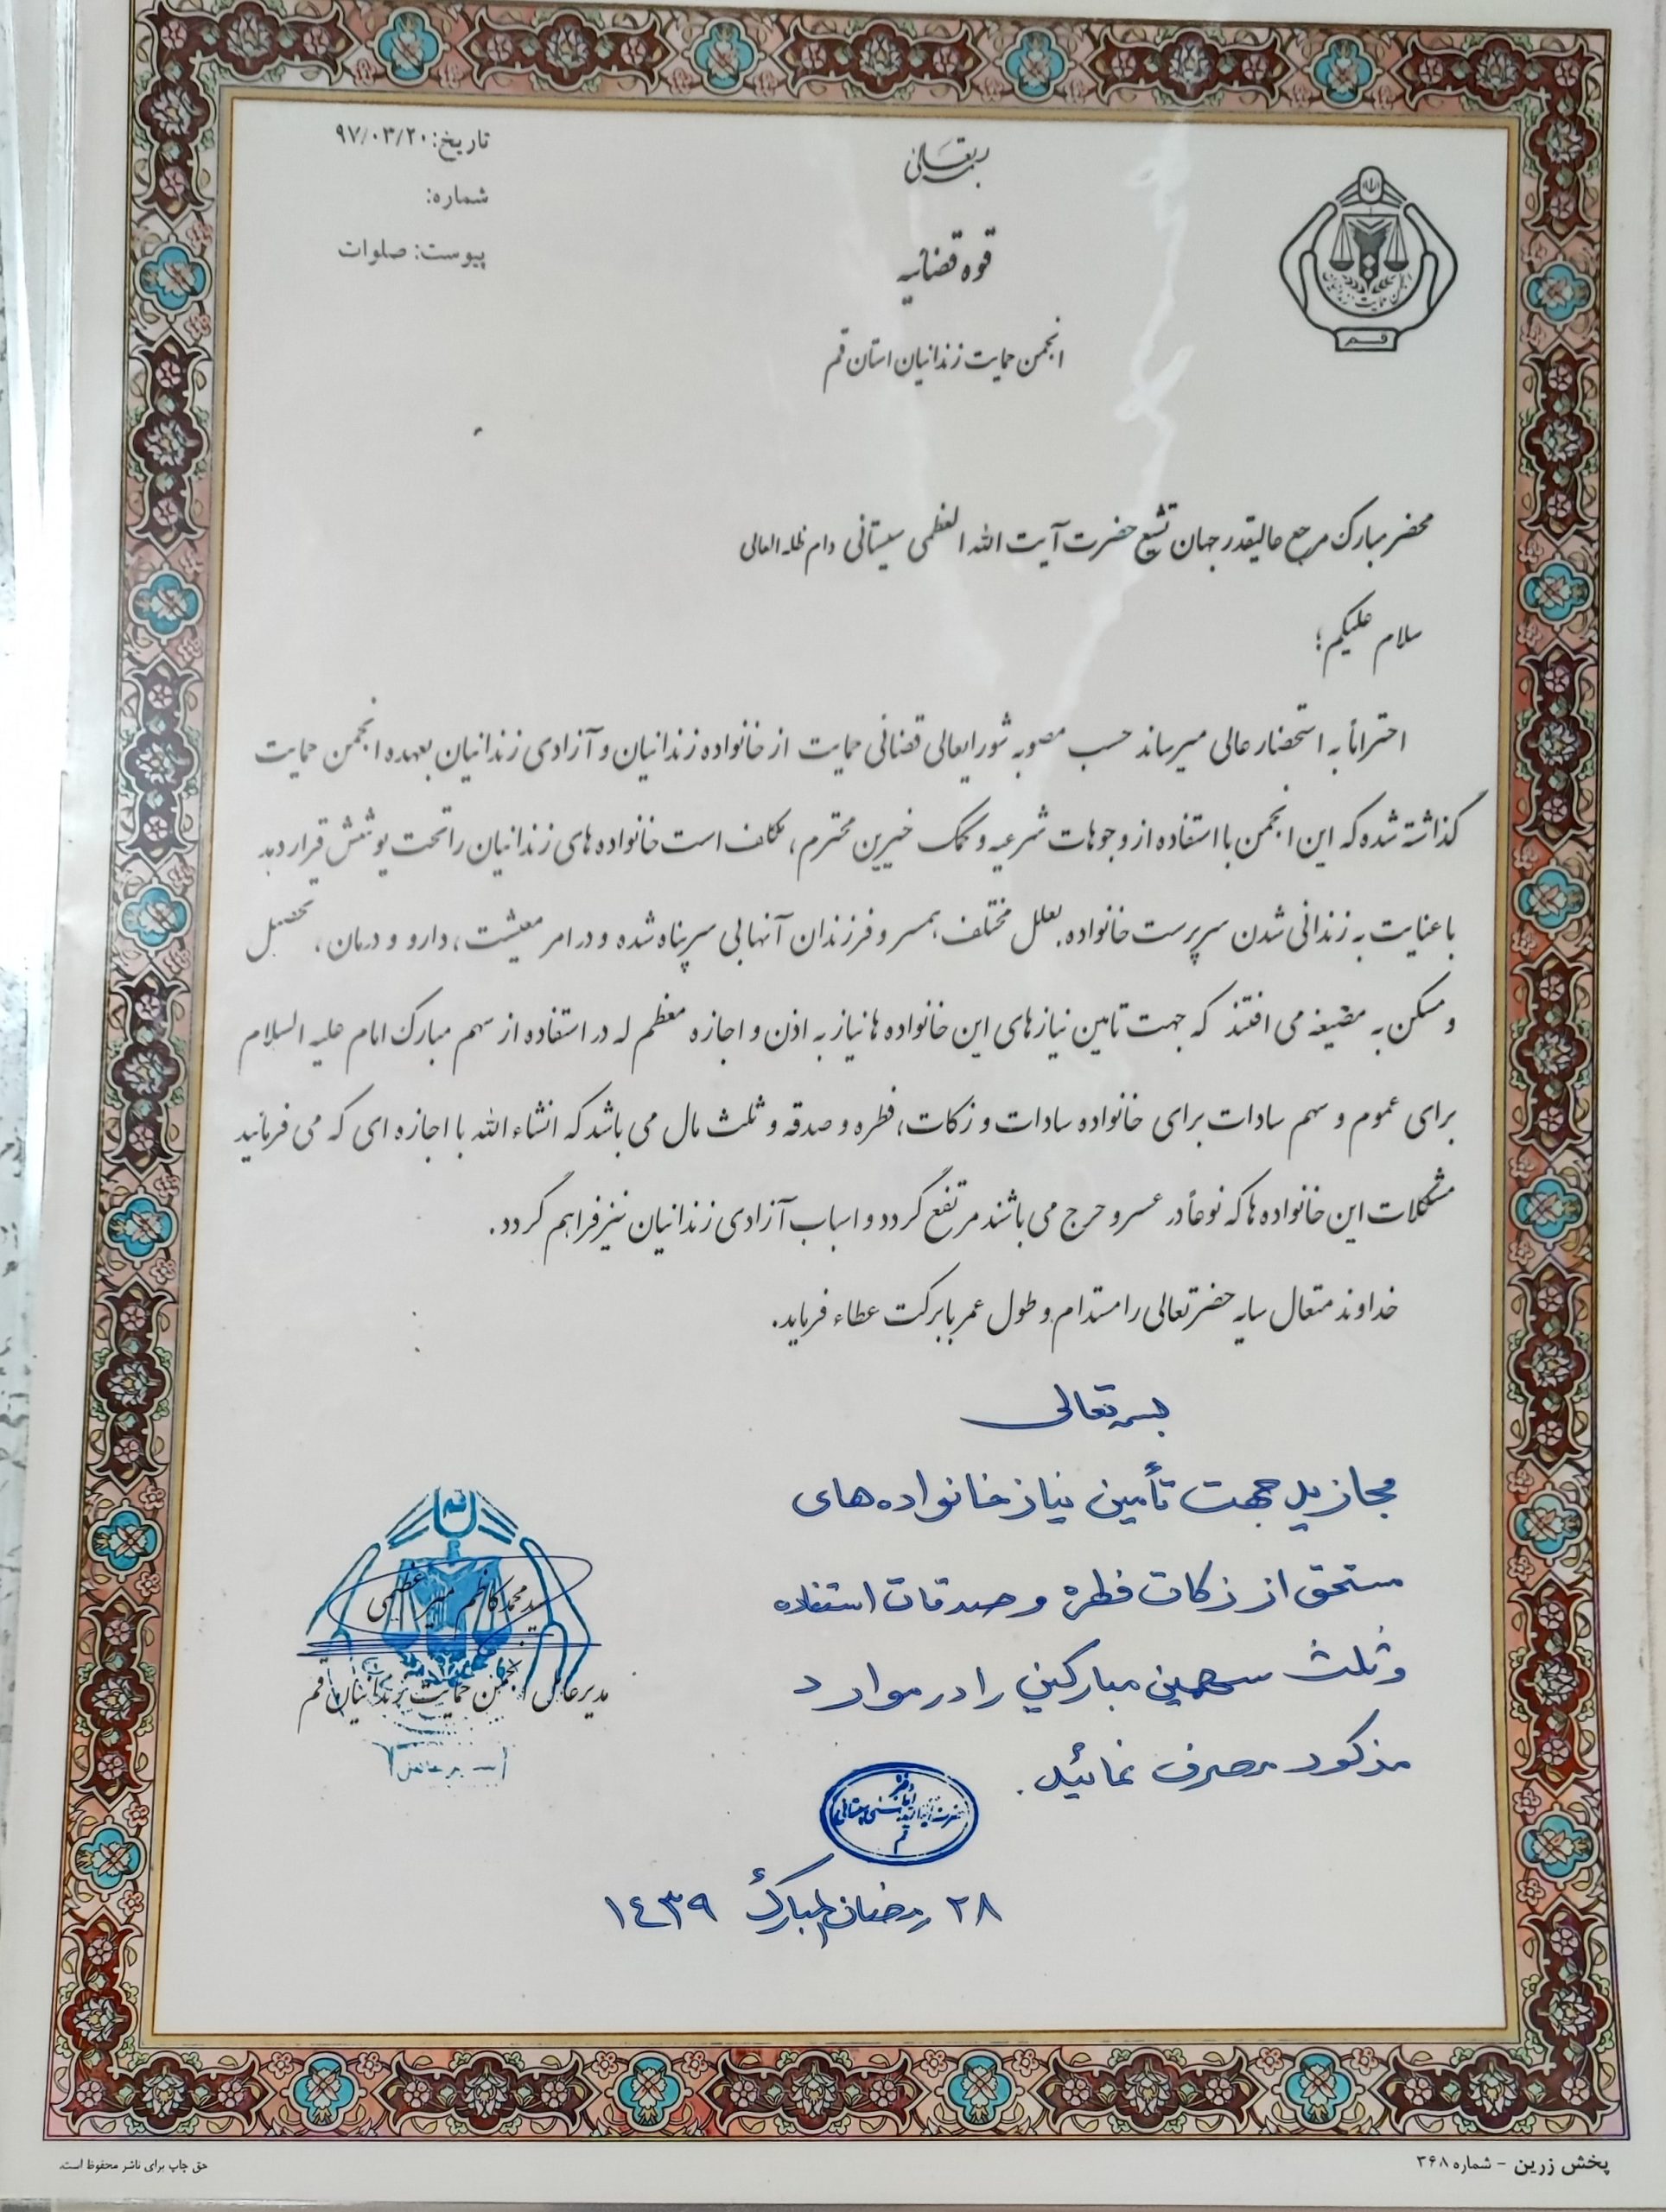 بسمه تعالی
تاریخ: ۹۷/۰۳/۲۰
شماره:
پیوست: صلوات
قوه قضائیه
انجمن حمایت زندانیان استان قم
قم
محضر مبارک مرجع عالیقدر جهان تشیع حضرت آیت الله العظمی سیستانی دام ظله العالی
سلام علیکم؛
احتراماً به استحضار عالی میرساند حسب مصوبه شورایعالی قضائی حمایت از خانواده زندانیان و آزادی زندانیان بعهده انجمن حمایت
گذاشته شده که این انجمن با استفاده از وجوهات شرعیه و کمک خیرین محترم، مکلف است خانواده های زندانیان را تحت پوشش قرار دهد
با عنایت به زندانی شدن سرپرست خانواده بعلل مختلف، همسر و فرزندان آنها بی سرپناه شده و در امر معیشت، دارو و درمان، تحصیل
و مسکن به مضیقه می افتند که جهت تامین نیازهای این خانواده ها نیاز به اذن و اجازه معظم له در استفاده از سهم مبارک امام علیه السلام
برای عموم و سهم سادات برای خانواده سادات و زکات، فطره و صدقه و ثلث مال می باشد که انشاء الله با اجازه ای که می فرمائید
مشکلات این خانواده ها که نوعاً در عسر و حرج می باشند مرتفع گردد و اسباب آزادی زندانیان نیز فراهم گردد.
خداوند متعال سایه حضرتعالی را مستدام و طول عمر با برکت عطاء فرماید.
بسمه تعالی
مجازید جهت تأمین نیاز خانواده های
مستحق از زکات فطره و صدقات استفاده
و ثلث سهمین مبارکین را در موارد
مذکور مصرف نمائید.
سید محمد کاظم میر عظیمی
مدیرعامل انجمن حمایت زندانیان قم
دفتر
قم
۲۸ رمضان المبارک ۱٤۳۹
پخش زرین - شماره ۳۶۸
حق چاپ برای ناشر محفوظ است.